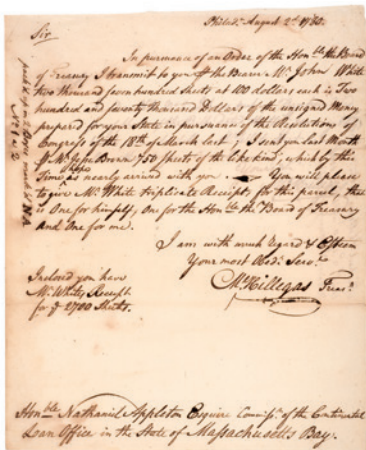 Philad.ª August 2.d 1780.
Sir
In pursuance of an Order of the Hon.ble the Board
of Treasury I transmit to you ⅌ the Bearer Mr. John White
two thousand seven hundred Sheets at 100 dollars each is Two
hundred and seventy thousand Dollars of the unsigned Money
prepared for your State in pursuance of the Resolutions of
Congress of the 18th of March last; I sent you last Month
⅌ Mr. Jesse Brown 750 Sheets of the like kind, which by this
Time has nearly arrived with you. — You will please
to give Mr. White triplicate Receipts for this parcel, that
is One for himself, One for the Hon.ble the Board of Treasury
and One for me.
I am with much Regard & Esteem
Your most Obed.t Serv.t
M. Hillegas Treas.r
Inclosed you have
Mr. Whites Receipt
for ⅌ 2700 Sheets.
Hon.ble Nathaniel Appleton Esquire Commiss.r of the Continental
Loan Office in the State of Massachusetts Bay.
packed up in 2 Boxes mark'd
No. 1 & 2